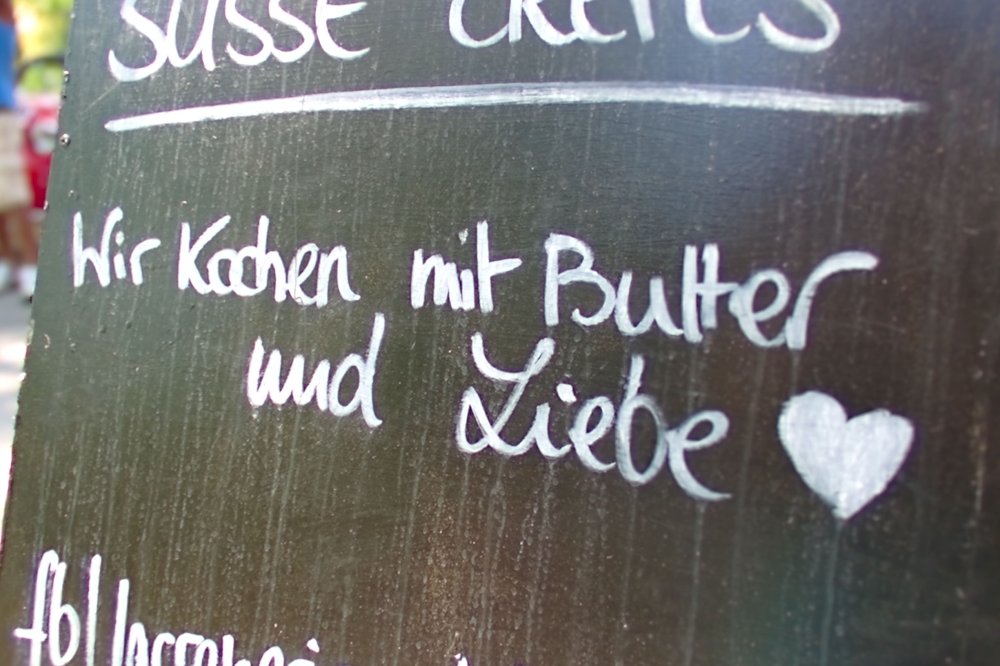 SÜSSE CRÊPES
Wir Kochen mit Butter
und Liebe ♥
fb/